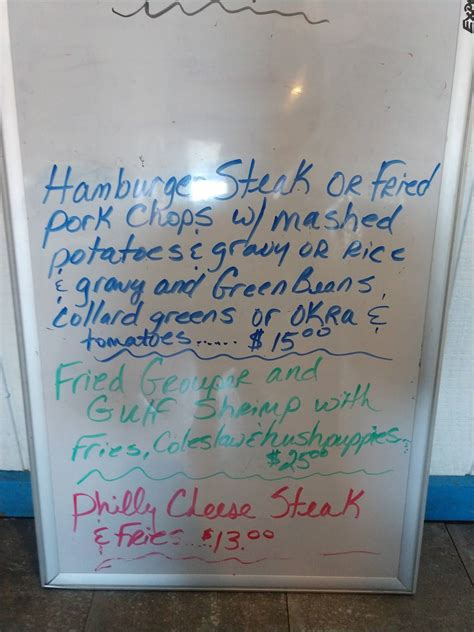 Hamburger Steak OR Fried
pork Chops w/ mashed
potatoes & gravy OR Rice
& gravy and Green Beans,
Collard greens or OKRa &
tomatoes...... $15.00
Fried Grouper and
Gulf Shrimp with
Fries, Coleslaw & hushpuppies...
$25.00
Philly Cheese Steak
& Fries.... $13.00